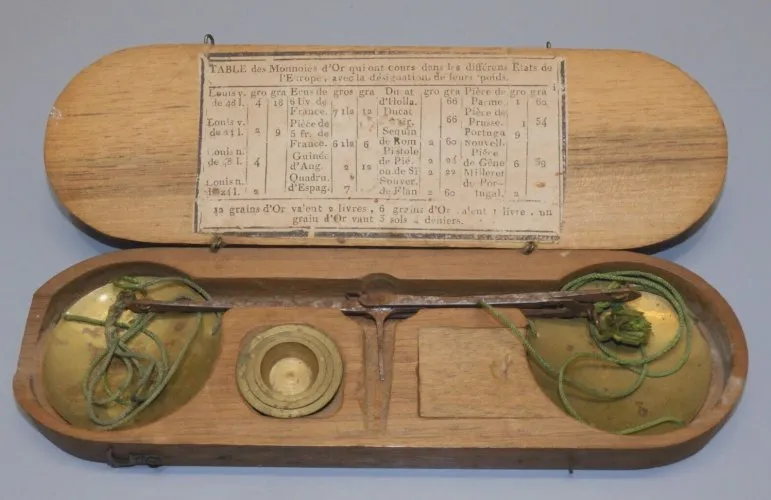 TABLE des Monnoies d'Or qui ont cours dans les différens Etats de
l'Europe, avec la désignation de leurs poids.
Louis v. gro gra
de 48 l. 4 18
Louis v.
de 24 l. 2 9
Louis n.
de 48 l. 4
Louis n.
de 24 l. 2
Ecus de gros gra
6 liv de
France. 7 1/2 12
Pièce de
5 fr. de
France. 6 1/2 6
Guinée
d'Ang. 2 12
Quadru.
d'Espag. 7
Ducat gro gra
d'Holla. 66
Ducat
66
Sequin
de Rom 2 60
Pistole
de Pié. 2 24
on de Si 2 22
Souver.
de Flan 2 60
Pièce de gro gra
Parme. 1 62
Pièce de
Prusse. 1 54
Portuga 9
Nouvell.
Pièce
de Gêne 6 38
Milleret
de Por-
tugal. 2
12 grains d'Or valent 2 livres, 6 grains d'Or valent 1 livre, un
grain d'Or vaut 3 sols 4 deniers.